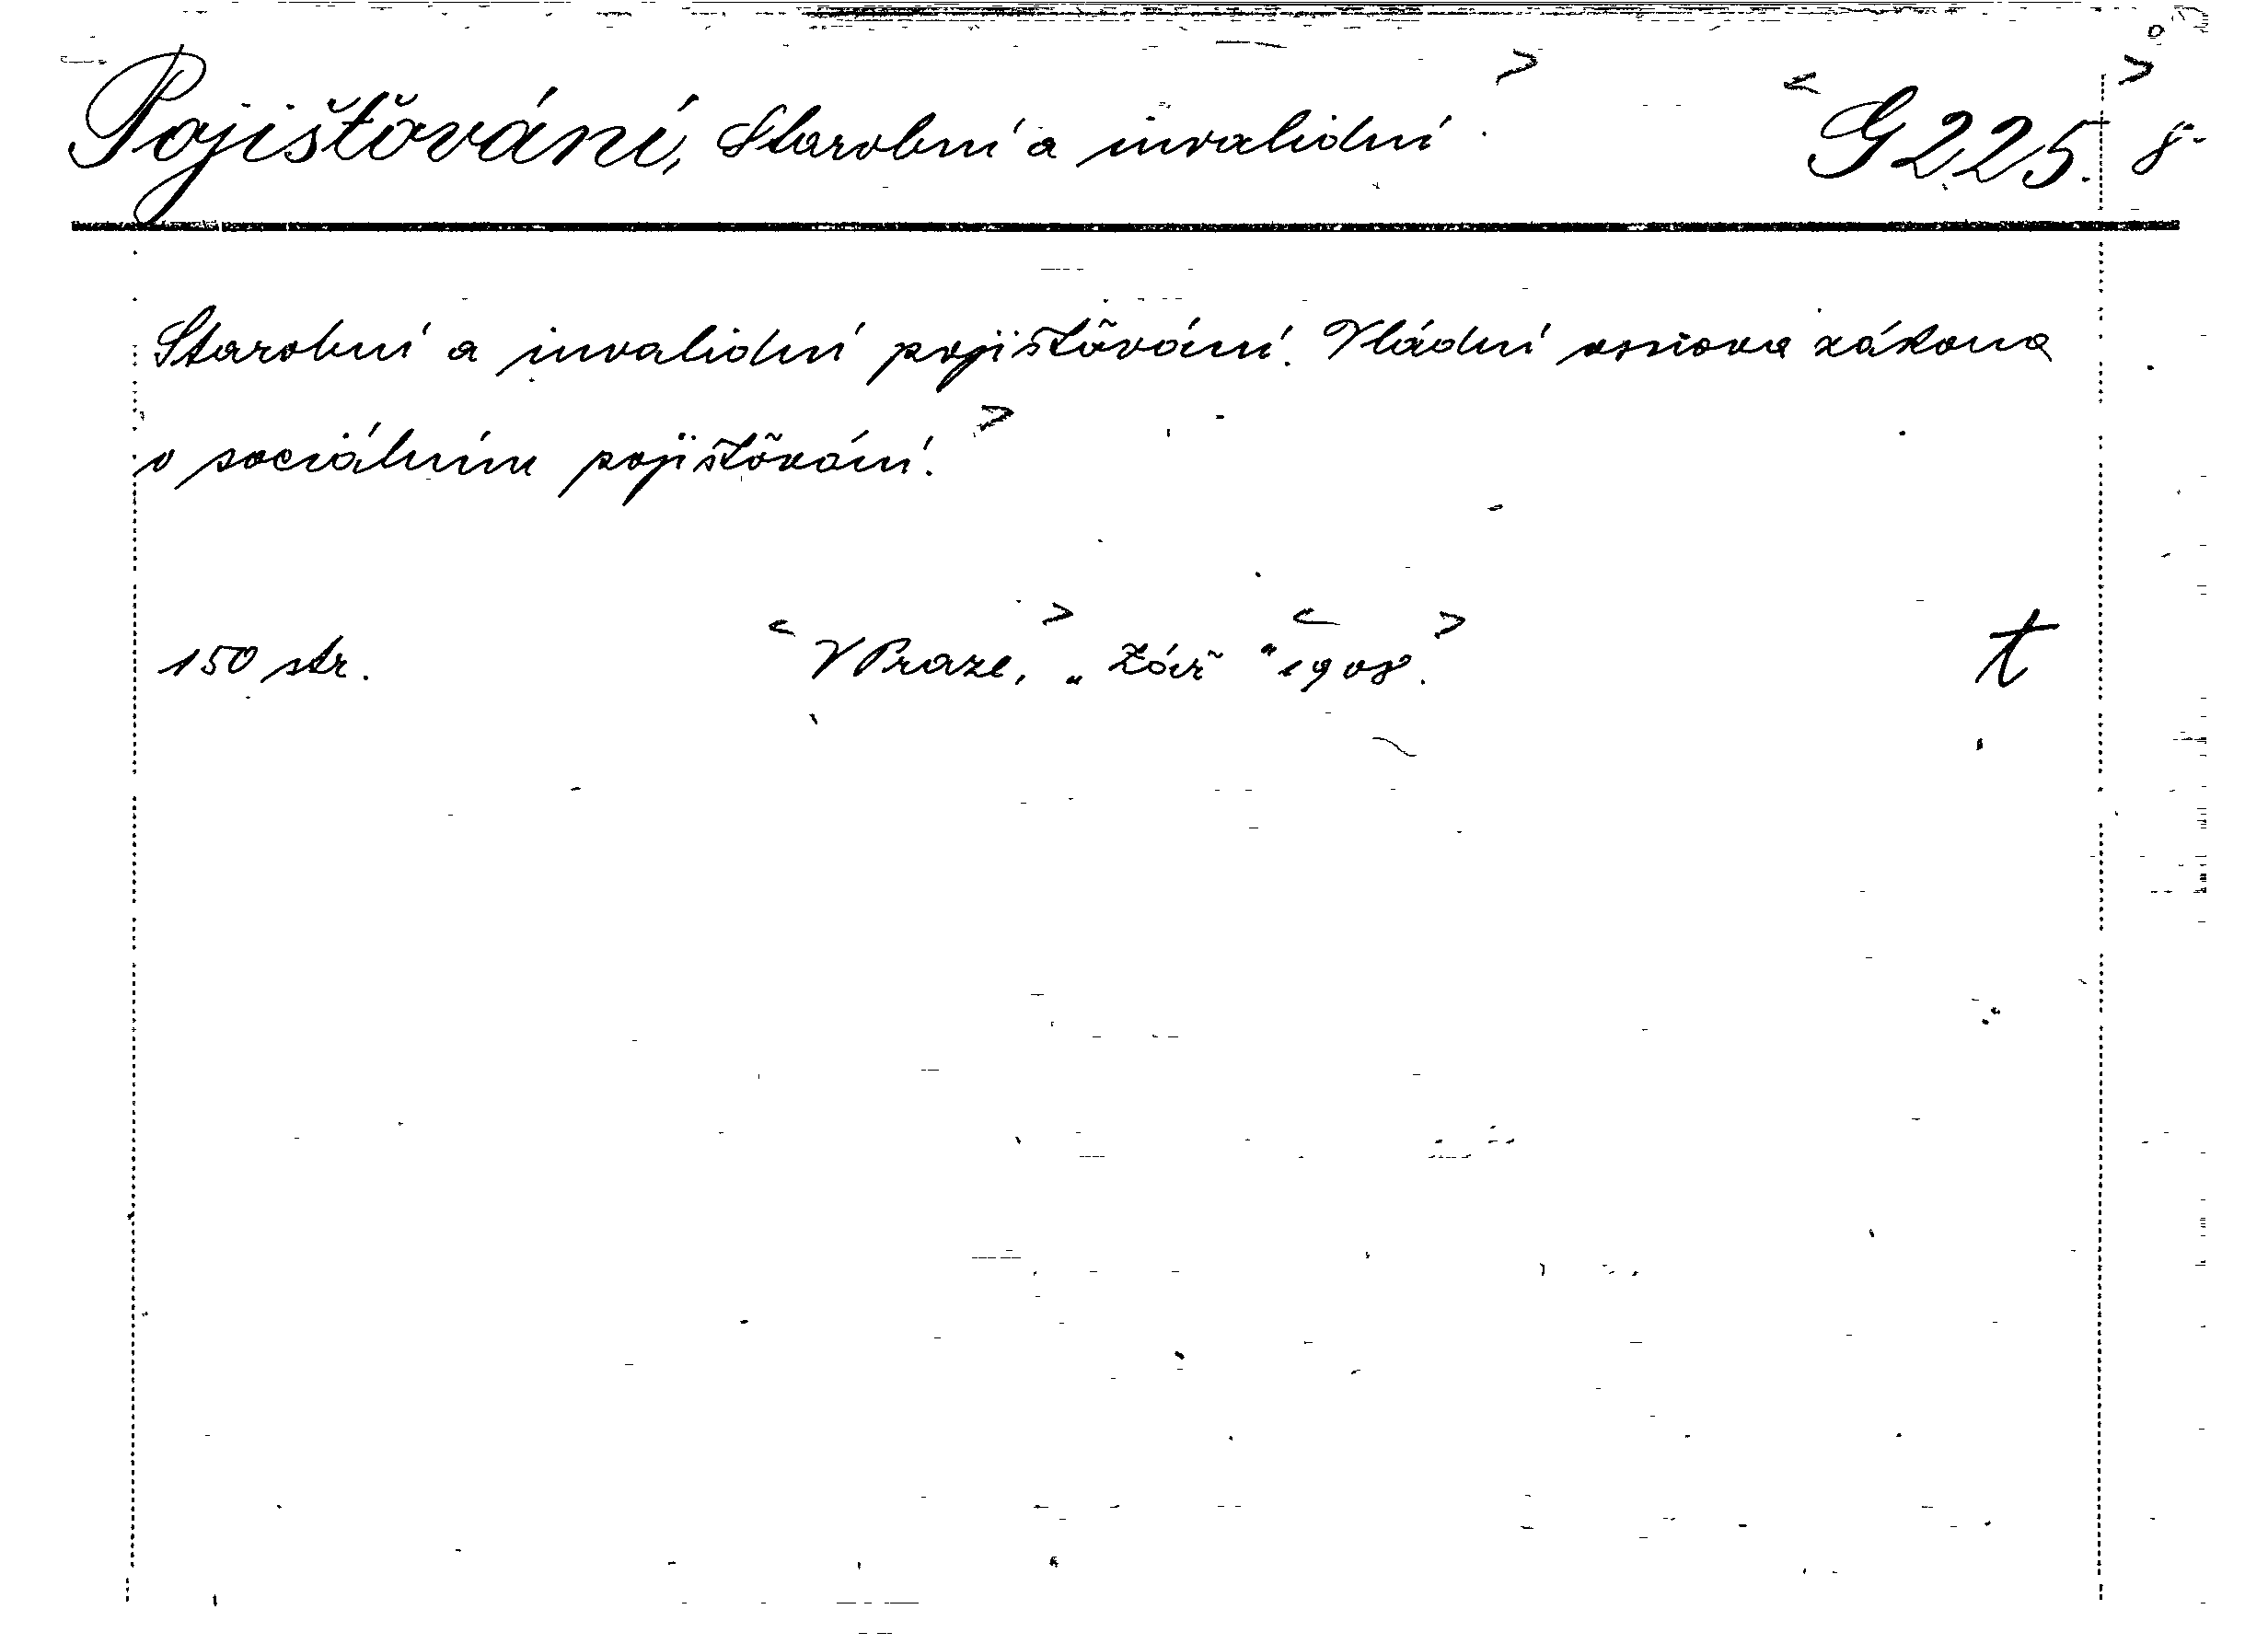 Pojišťování, Starobní a invalidní. G 225. 8°
Starobní a invalidní pojišťování. Vládní osnova zákona
o sociálním pojišťování.
150 str. V Praze, „Zář“ 1908. t